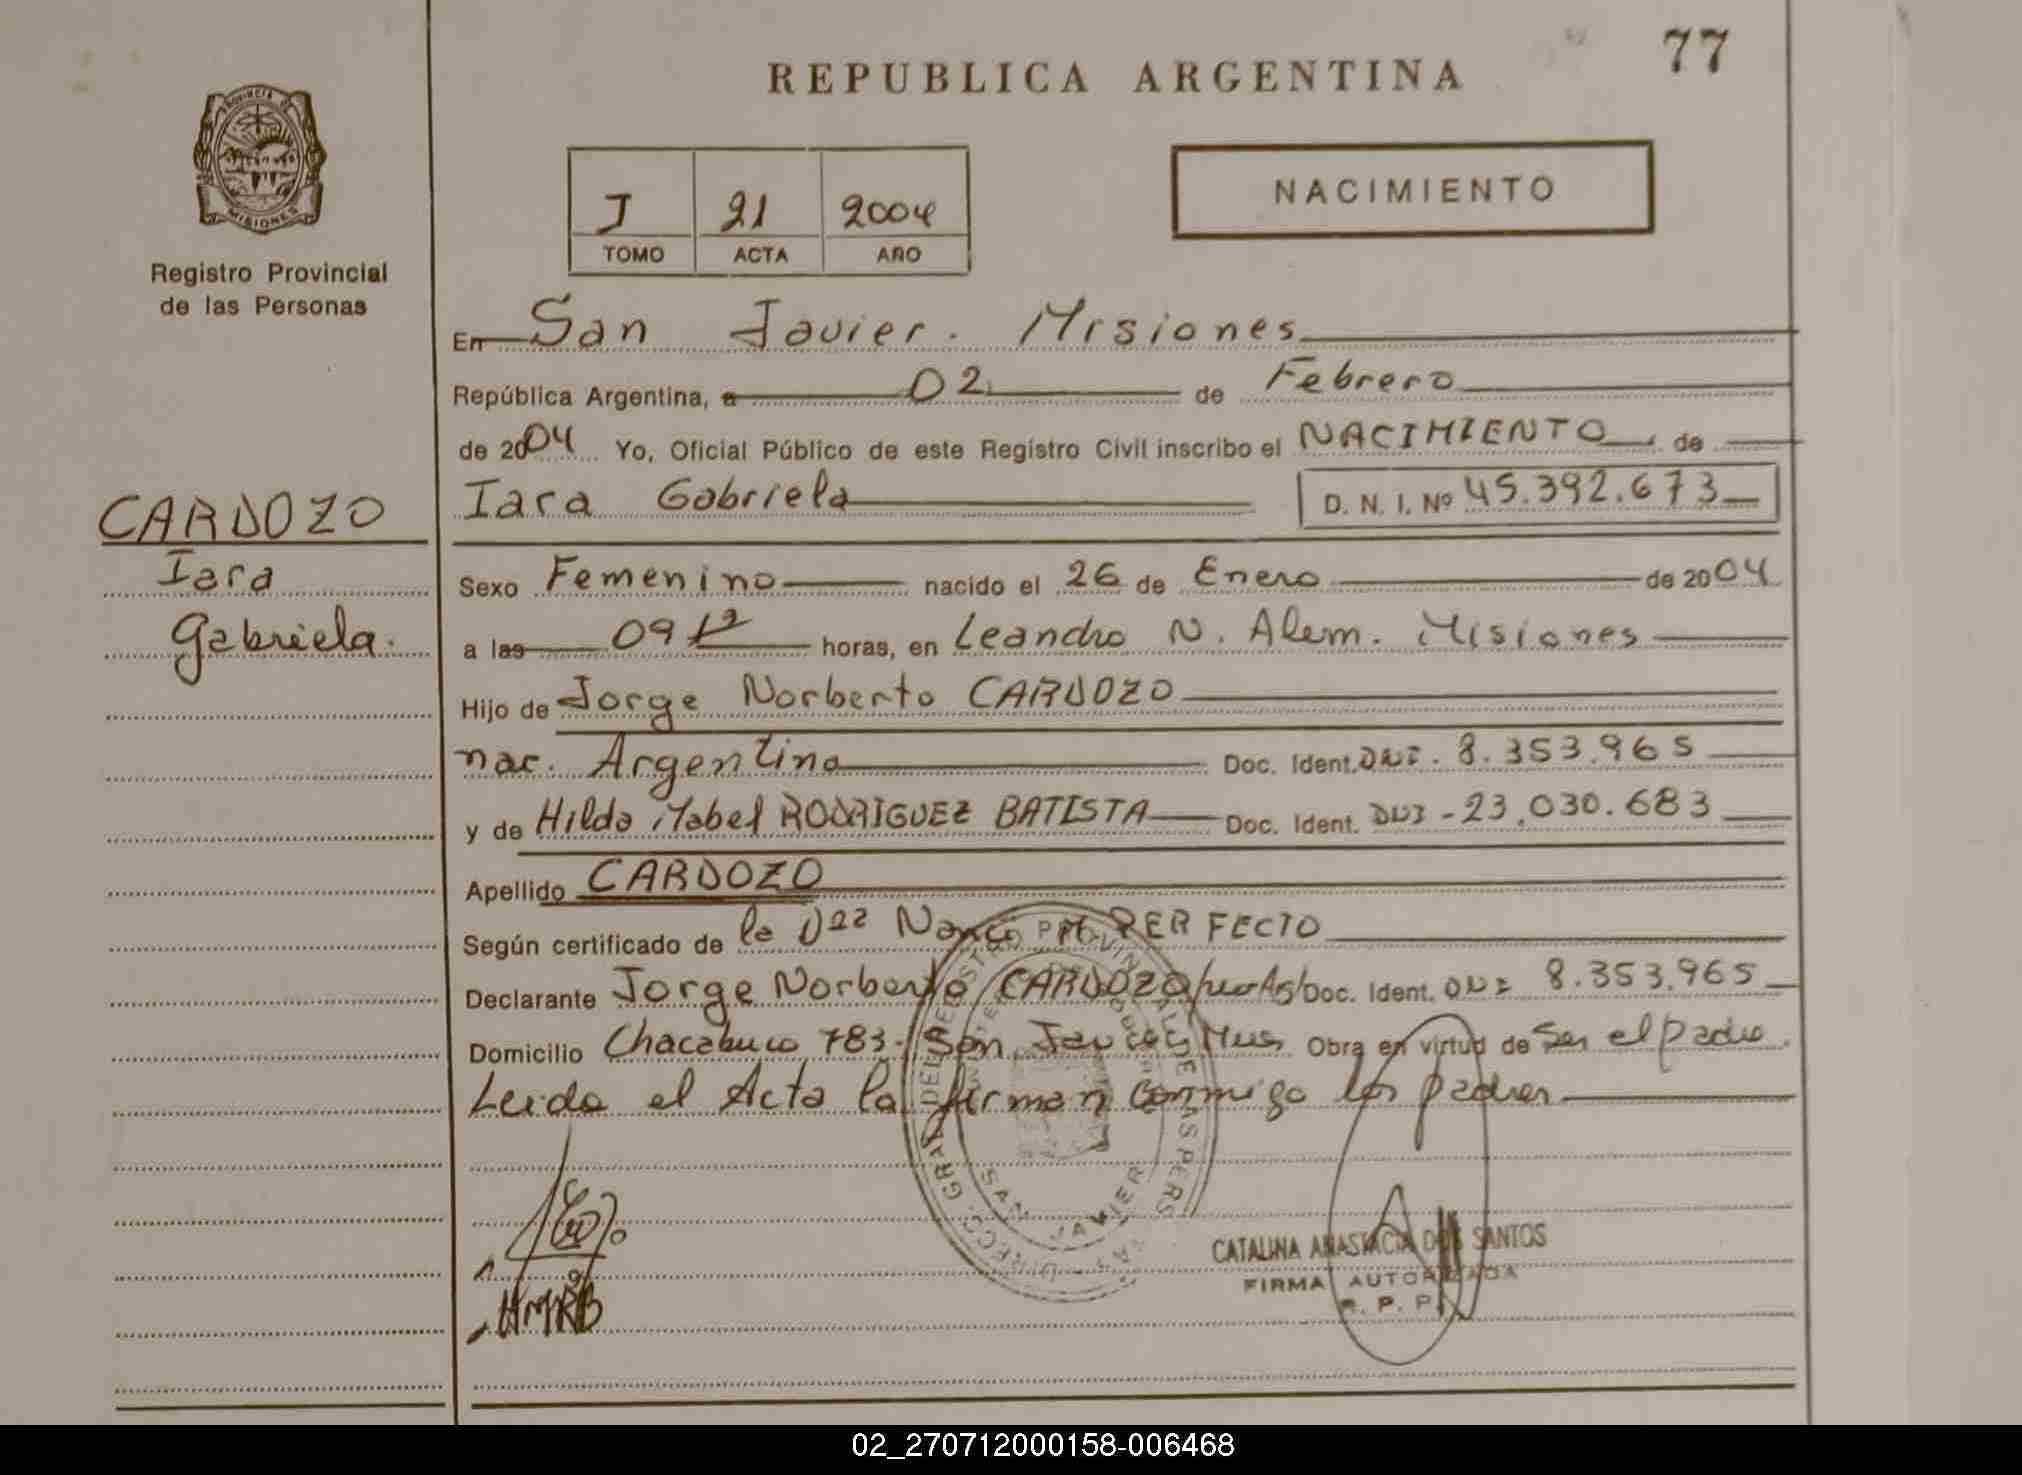 77
REPUBLICA ARGENTINA
PROVINCIA DE
MISIONES
Registro Provincial
de las Personas
J 21 2004
TOMO ACTA AÑO
NACIMIENTO
En San Javier. Misiones
República Argentina, a 02 de Febrero
de 2004 Yo, Oficial Público de este Registro Civil inscribo el NACIMIENTO de
Iara Gabriela D. N. I. Nº 45.392.673
CARDOZO
Iara
Gabriela.
Sexo Femenino nacido el 26 de Enero de 2004
a las 09 horas, en Leandro N. Alem. Misiones
Hijo de Jorge Norberto CARDOZO
nac. Argentina Doc. Ident. DNI. 8.353.965
y de Hilda Mabel RODRIGUEZ BATISTA Doc. Ident. DNI - 23.030.683
Apellido CARDOZO
Según certificado de la PERFECTO
Declarante Jorge Norberto CARDOZO Doc. Ident. DNI 8.353.965
Domicilio Chacabuco 783. San Javier Mnes Obra en virtud de Ser el padre.
Leida el Acta la firman conmigo los padres
SAN JAVIER
CATALINA ANASTACIA DOS SANTOS
FIRMA AUTORIZADA
R. P. P.
HMRB
02_270712000158-006468